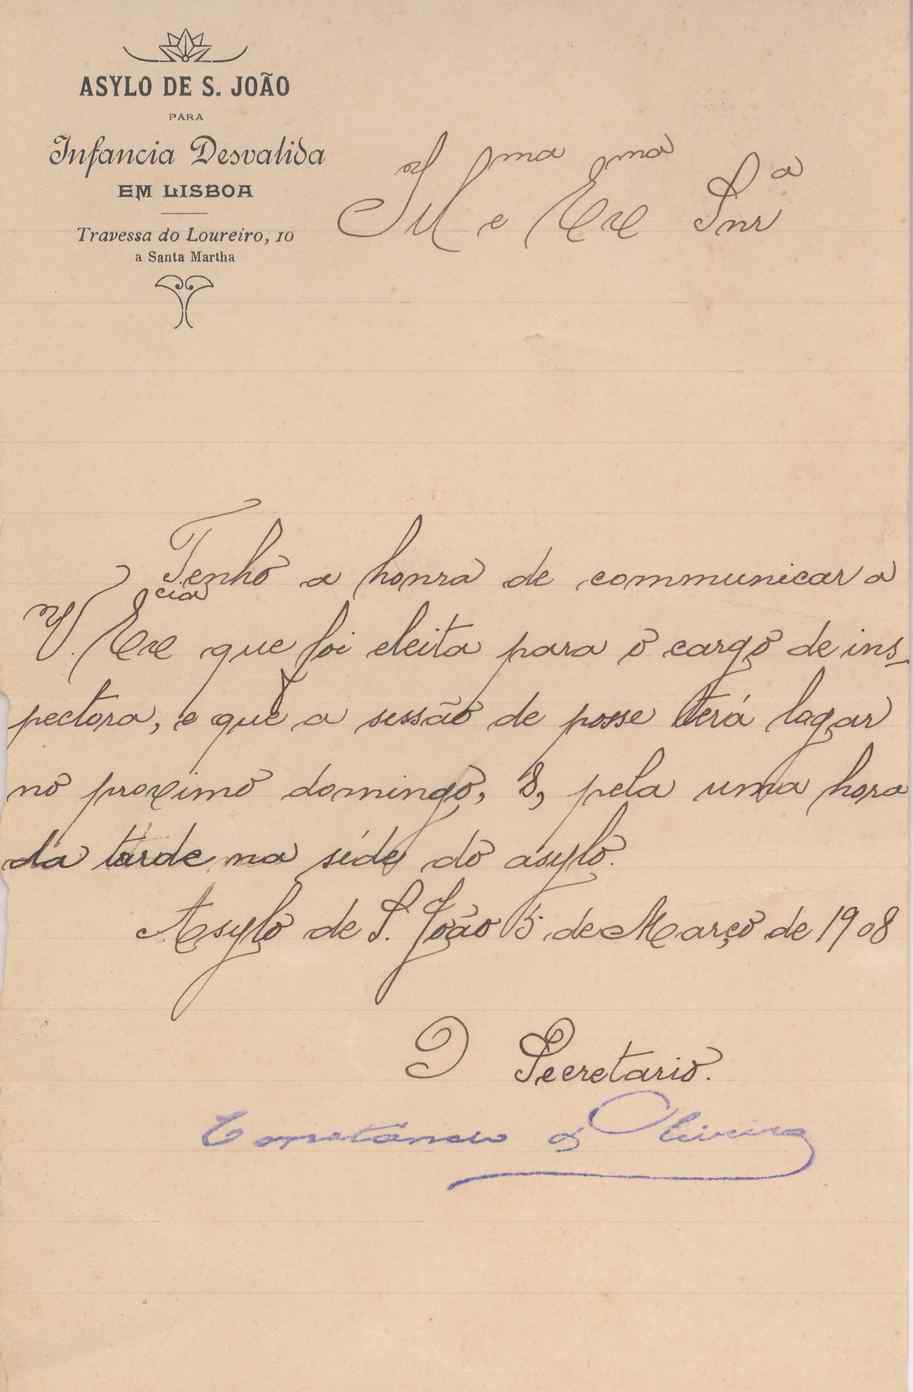 ASYLO DE S. JOÃO
PARA
Infancia Desvalida
EM LISBOA
Travessa do Loureiro, 10
a Santa Martha
Illma e Exma Snra
Tenho a honra de communicar a
V. Excia que foi eleita para o cargo de ins-
pectora, e que a sessão de posse terá logar
no proximo domingo, 8, pela uma hora
da tarde na séde do asylo.
Asylo de S. João 5 de Março de 1908
O Secretario.
Constáncio d'Oliveira